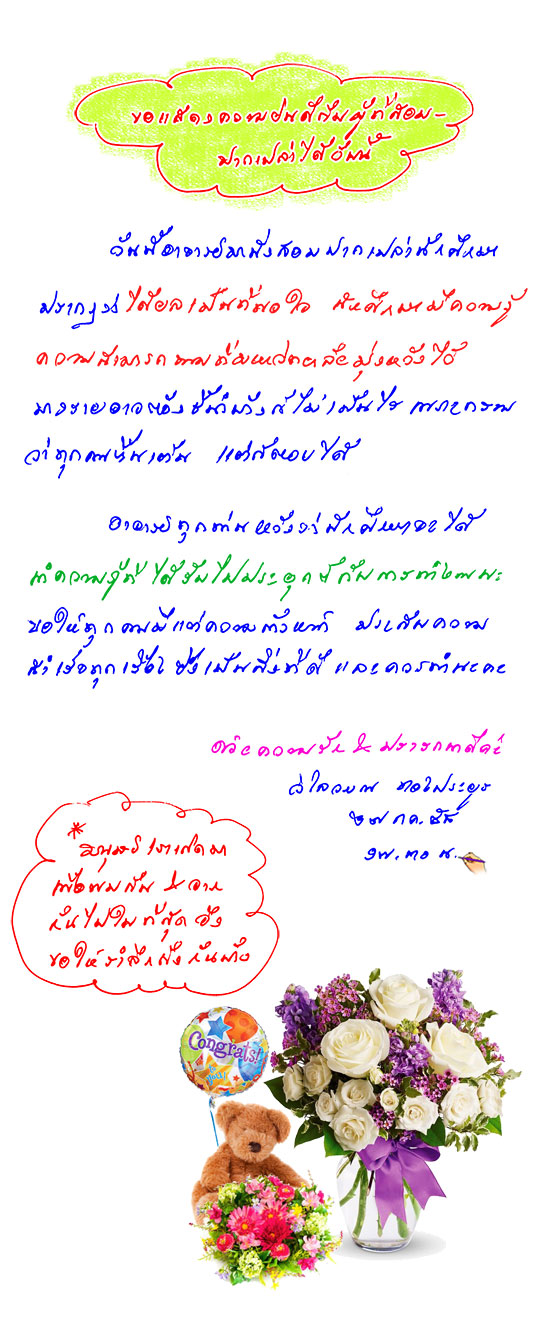 ขอแสดงความยินดีกับผู้ที่สอบ-
ปากเปล่าได้วันนี้
วันนี้อาจารย์มานั่งสอบปากเปล่านักศึกษา
ปรากฏว่าได้ผลเป็นที่พอใจ นักศึกษามีความรู้
ความสามารถตามที่
มุ่งหวังไว้
บางรายอาจ
บ้างก็ไม่เป็นไร เพราะทราบ
ว่าทุกคนตื่นเต้น แต่ก็ตอบได้
อาจารย์ทุกท่านหวังว่านักศึกษาจะได้
นำความรู้ที่ได้รับไปประยุกต์กับการทำงานนะ
ขอให้ทุกคนมีแต่ความก้าวหน้า ประสบความ
สำเร็จทุกเรื่อง ซึ่งเป็นสิ่งที่ดี และควรทำนะคะ
ด้วยความรัก & ปรารถนาดีค่ะ
๒๗ ก.ค.
๑๗.๓๐ น.
* มนุษย์เราเกิดมา
เพื่อพบกัน & จาก
กันไปในที่สุด จึง
ขอให้รำลึกถึงกันบ้าง
Congrats!
to you!